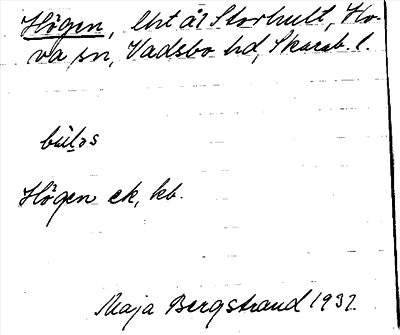 Högen, lht å Storhult, Ho-
va sn, Vadsbo hd, Skarab. l.
Högen ek, kb.
Maja Bergstrand 1932.